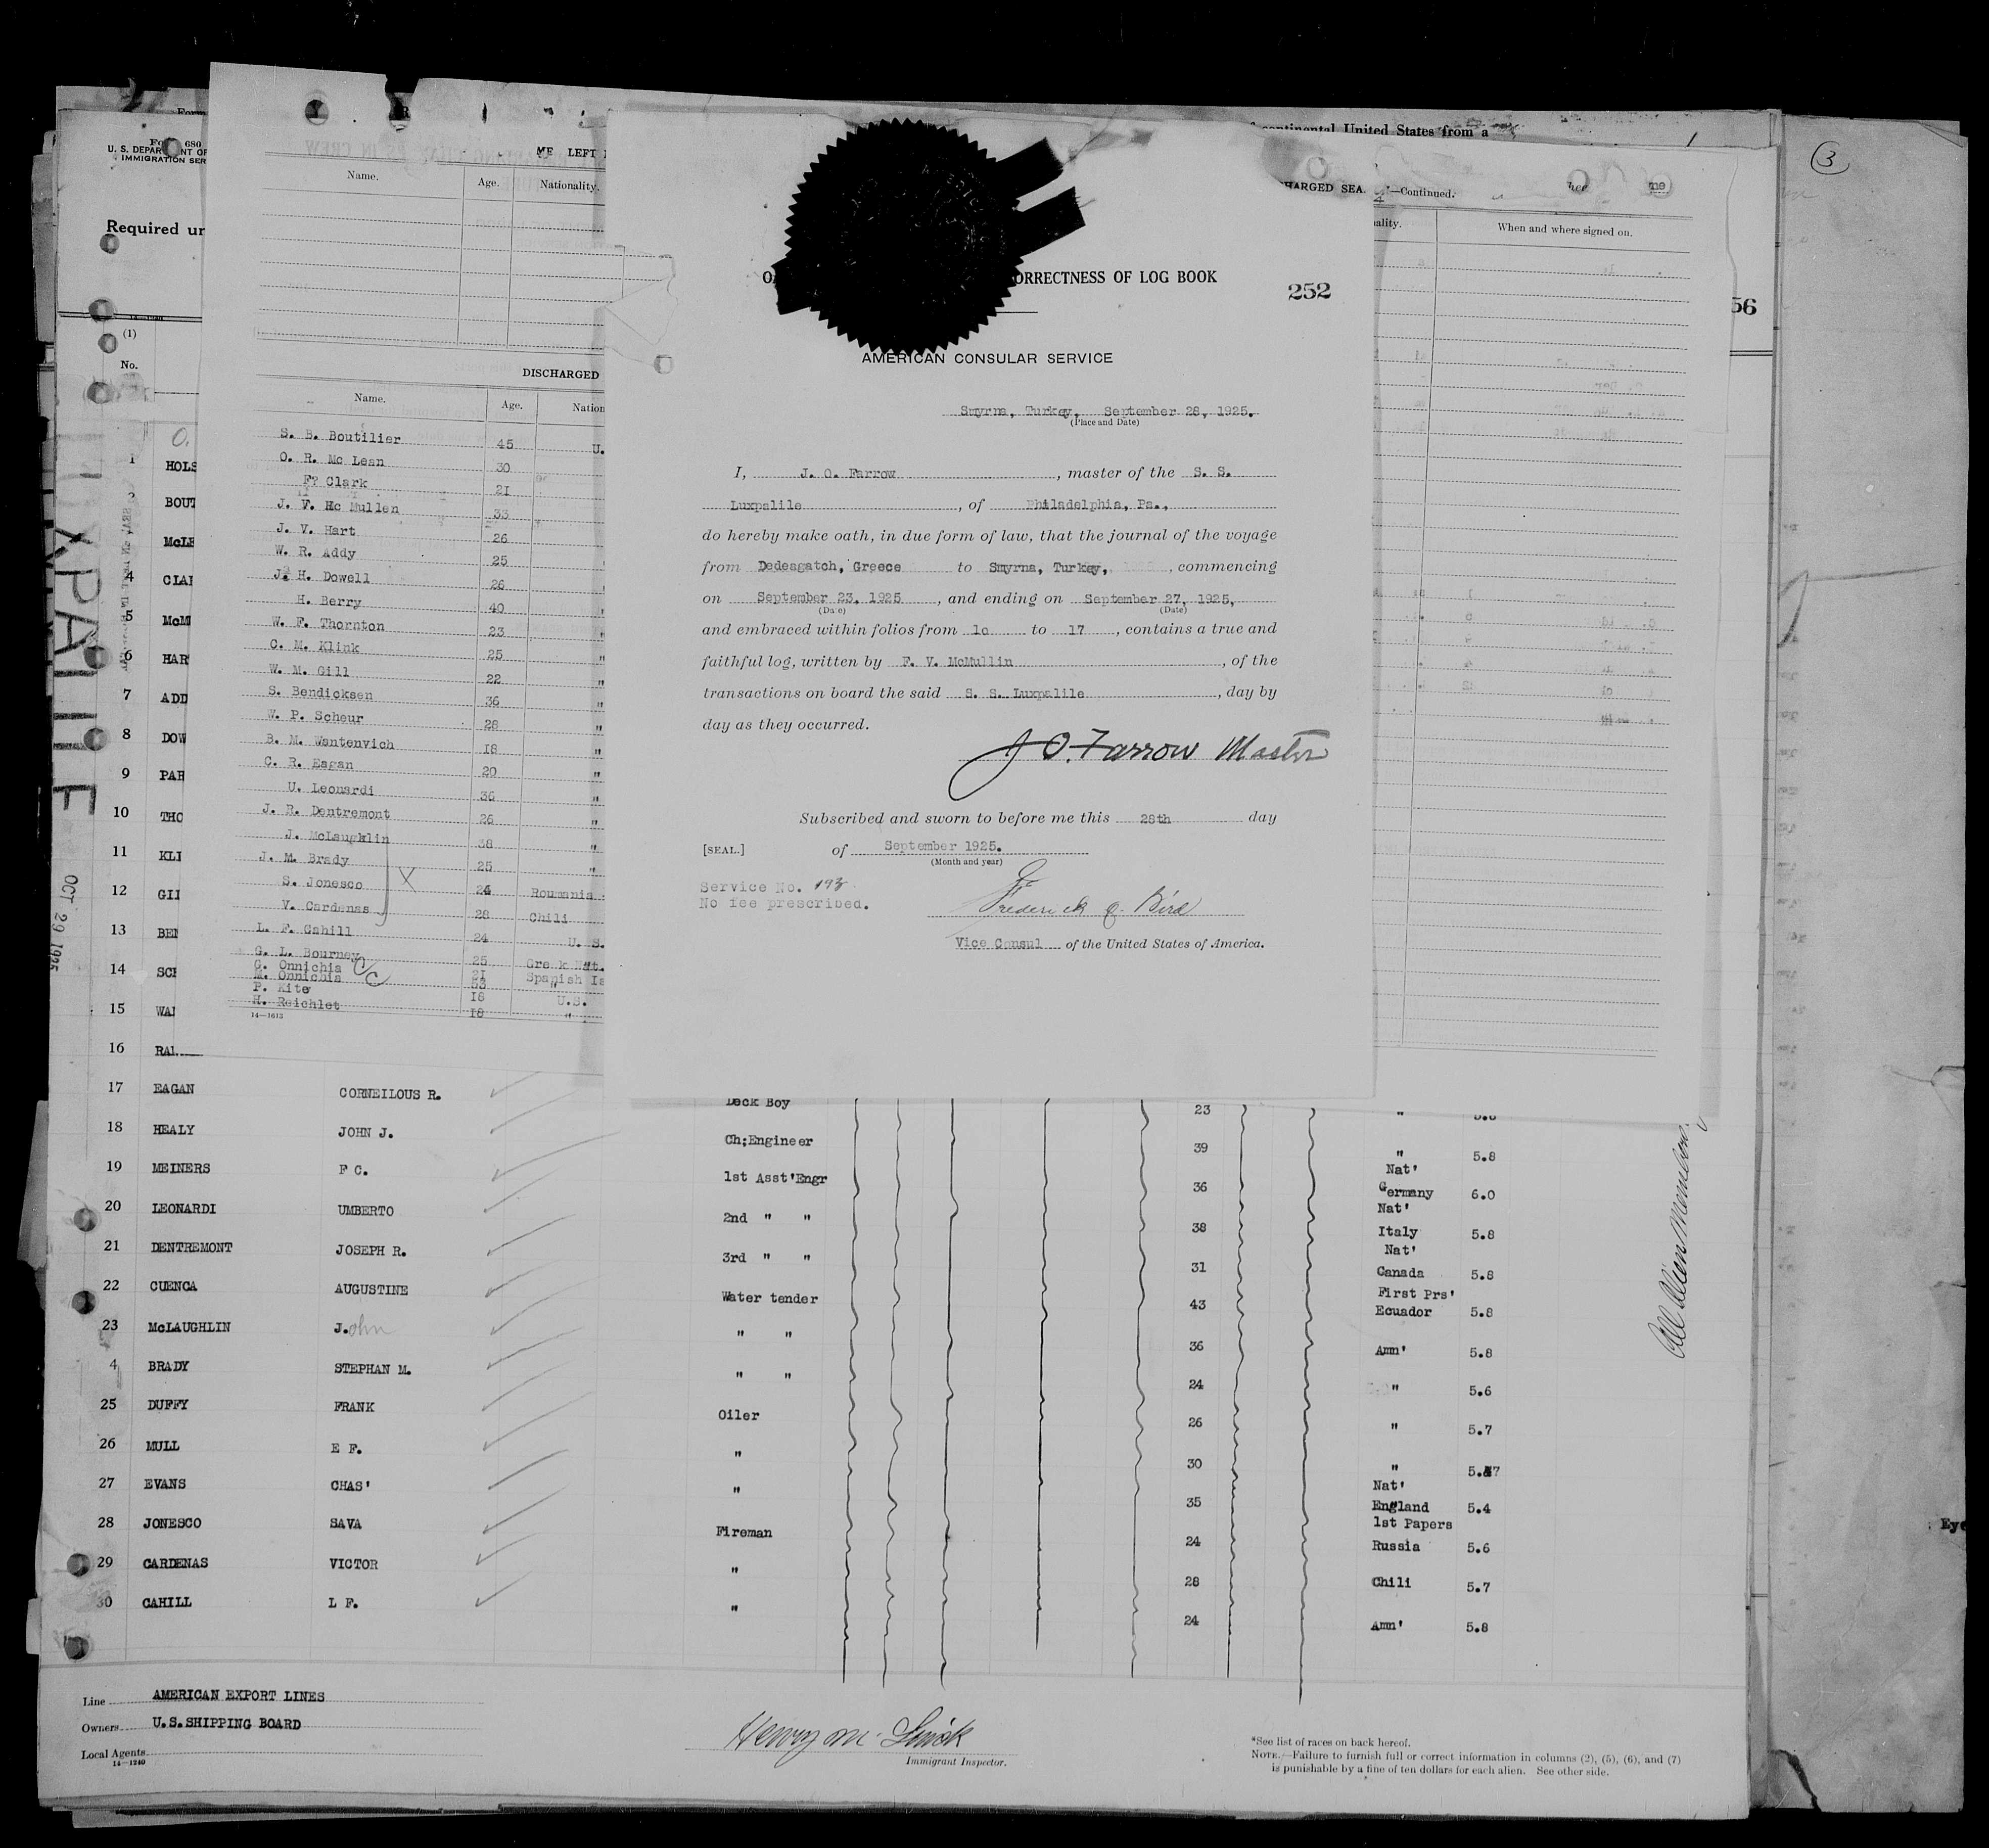 continental United States from a
3
680
U. S. DEPARTMENT OF
IMMIGRATION SER
Required un
(1)
No.
ME LEFT
Name. Age. Nationality.
DISCHARGED
Name. Age. Nation
S. B. Boutilier 45 U.
O. R. Mc Lean 30
F? Clark 21
J. V. Mc Mullen 33
J. V. Hart 26
W. R. Addy 25
J. H. Dowell 26
H. Berry 40
W. F. Thornton 23
C. M. Klink 25 "
W. M. Gill 22 "
S. Bendicksen 36 "
W. P. Scheur 28 "
B. M. Wantenvich 18 "
C. R. Eagan 20 "
U. Leonardi 36 "
J. R. Dentremont 26 "
J. McLaughlin 38 "
J. M. Brady 25 "
S. Jonesco 24 Roumania
X
V. Cardenas 28 Chili
L. F. Cahill 24 U. S.
G. L. Bourney 25 Greek Nat.
G. Onnichia 21 Spanish Is
M. Onnichia 53 "
P. Kite 18 U.S.
H. Reichlet 18 "
14—1613
ORRECTNESS OF LOG BOOK
252
AMERICAN CONSULAR SERVICE
Smyrna, Turkey, September 28, 1925.
(Place and Date)
I, J. O. Farrow, master of the S. S.
Luxpalile, of Philadelphia, Pa.,
do hereby make oath, in due form of law, that the journal of the voyage
from Dedeagatch, Greece to Smyrna, Turkey, , commencing
on September 23, 1925, and ending on September 27, 1925,
(Date) (Date)
and embraced within folios from 10 to 17, contains a true and
faithful log, written by F. V. McMullin, of the
transactions on board the said S. S. Luxpalile, day by
day as they occurred.
J O. Farrow Master
Subscribed and sworn to before me this 28th day
[SEAL.] of September 1925.
(Month and year)
Service No. 193
No fee prescribed.
Frederick O. Bird
Vice Consul of the United States of America.
HARGED SEA —Continued.
ality. When and where signed on.
56
XPALILE
OCT 29 1925
1 HOLS
2 BOUT
McLE
4 CLAI
5 McM
6 HAR
7 ADD
8 DOW
9 PAR
10 THO
11 KLI
12 GIL
13 BEN
14 SCH
15 WAN
16 RAL
17 EAGAN CORNEILOUS R. Deck Boy 23 " 5.8
18 HEALY JOHN J. Ch;Engineer 39 " 5.8
19 MEINERS F C. 1st Asst'Engr 36 Nat' Germany 6.0
20 LEONARDI UMBERTO 2nd " " 38 Nat' Italy 5.8
21 DENTREMONT JOSEPH R. 3rd " " 31 Nat' Canada 5.8
22 CUENCA AUGUSTINE Water tender 43 First Prs' Ecuador 5.8
23 McLAUGHLIN J.ohn " " 36 Amn' 5.8
4 BRADY STEPHAN M. " " 24 " 5.6
25 DUFFY FRANK Oiler 26 " 5.7
26 MULL E F. " 30 " 5.7
27 EVANS CHAS' " 35 Nat' England 5.4
28 JONESCO SAVA Fireman 24 1st Papers Russia 5.6
29 CARDENAS VICTOR " 28 Chili 5.7
30 CAHILL L F. " 24 Amn' 5.8
Eye
Line AMERICAN EXPORT LINES
Owners U.S.SHIPPING BOARD
Local Agents
14—1240
Immigrant Inspector.
*See list of races on back hereof.
NOTE.—Failure to furnish full or correct information in columns (2), (5), (6), and (7)
is punishable by a fine of ten dollars for each alien. See other side.